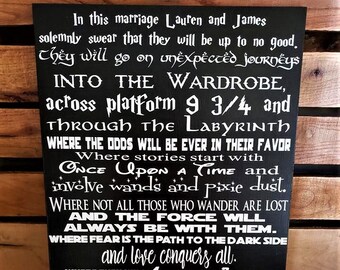 In this marriage Lauren and James
solemnly swear that they will be up to no good.
They will go on unexpected journeys
into the Wardrobe,
across platform 9 3/4 and
through the Labyrinth
WHERE THE ODDS WILL BE EVER IN THEIR FAVOR
Where stories start with
Once Upon a Time and
involve wands and pixie dust.
Where not all those who wander are lost
AND THE FORCE WILL
ALWAYS BE WITH THEM.
WHERE FEAR IS THE PATH TO THE DARK SIDE
and love conquers all.